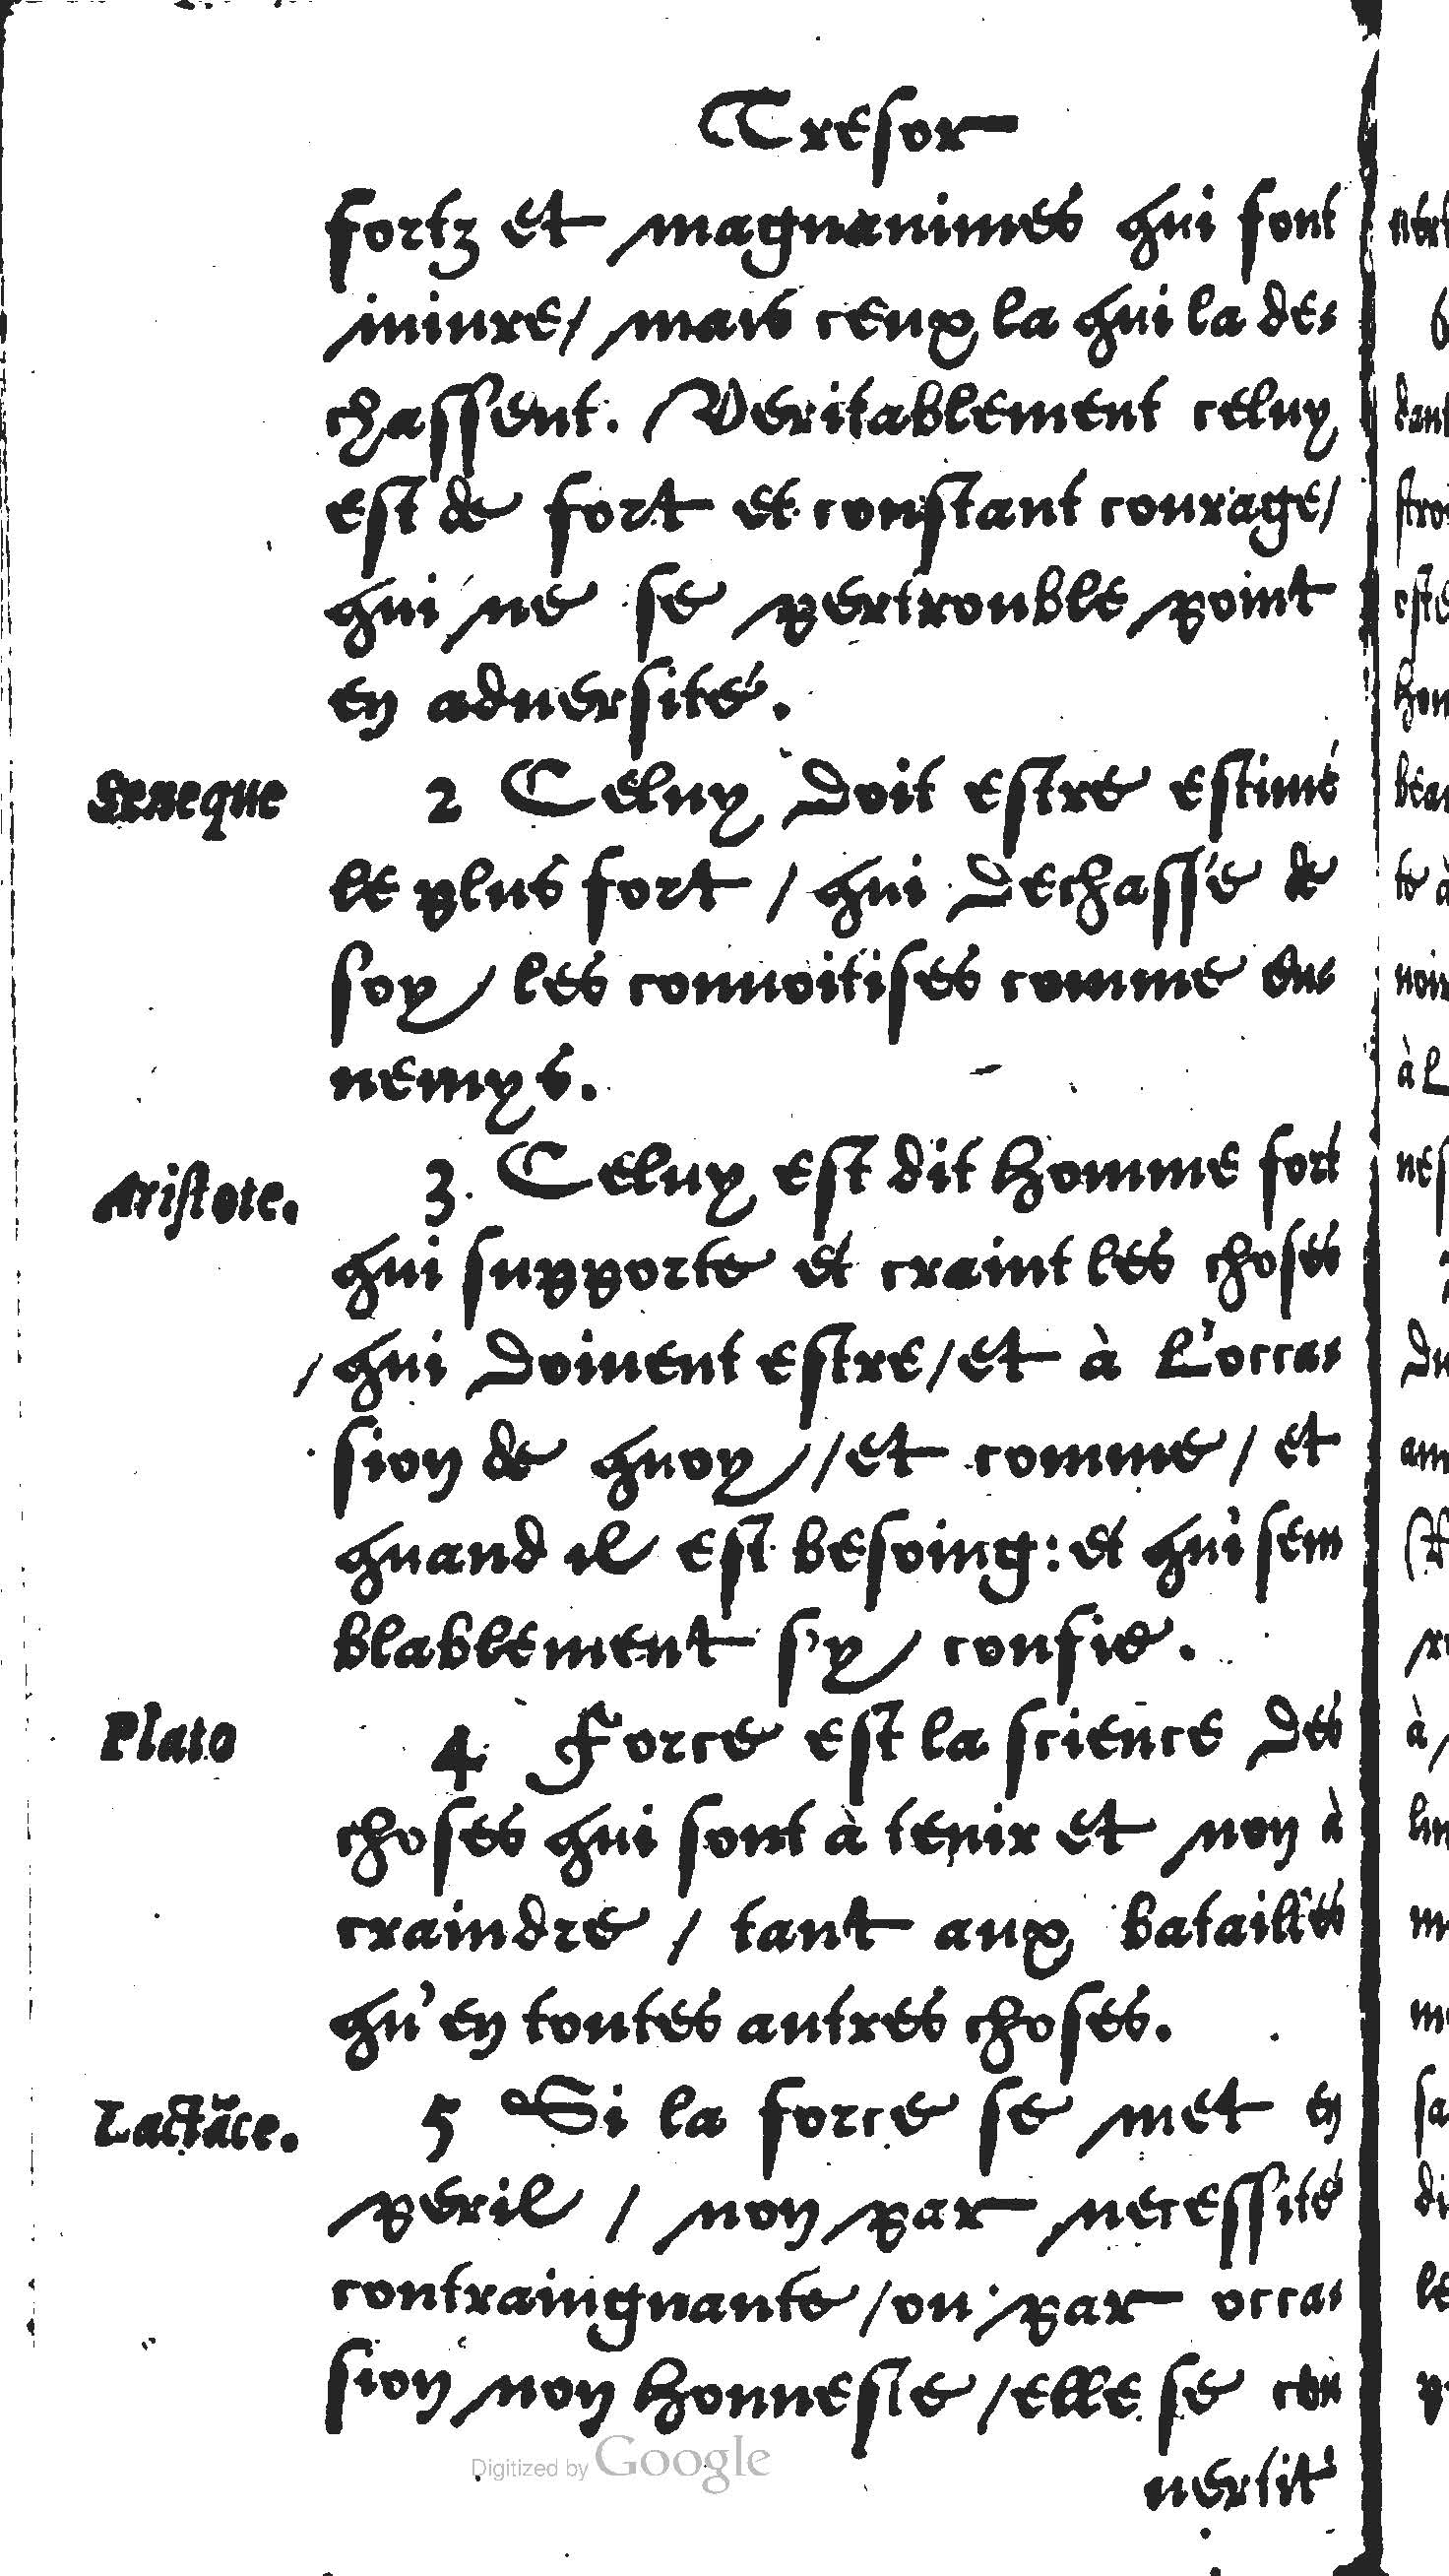 Tresor
fortz et magnanimes qui font
iniure/ mais ceux la qui la des
chassent. Veritablement celuy
est de fort et constant courage/
qui ne se pertrouble point
en aduersité.
Seneque
2 Celuy doit estre estimé
le plus fort / qui dechasse de
soy / les conuoitises comme en-
nemys.
Aristote.
3. Celuy est dit homme fort
qui supporte et craint les choses
/ qui doiuent estre/ et à l'occa-
sion de quoy / et comme / et
quand il est besoing: et qui sem
blablement s'y confie.
Plato
4 Force est la science des
choses qui sont à tenir et non à
craindre / tant aux batailles
qu'en toutes autres choses.
Lactãce.
5 Si la force se met en
peril / non par necessité
contraingnante / ou par occa-
sion non honneste / elle se con
uertit
Digitized by Google